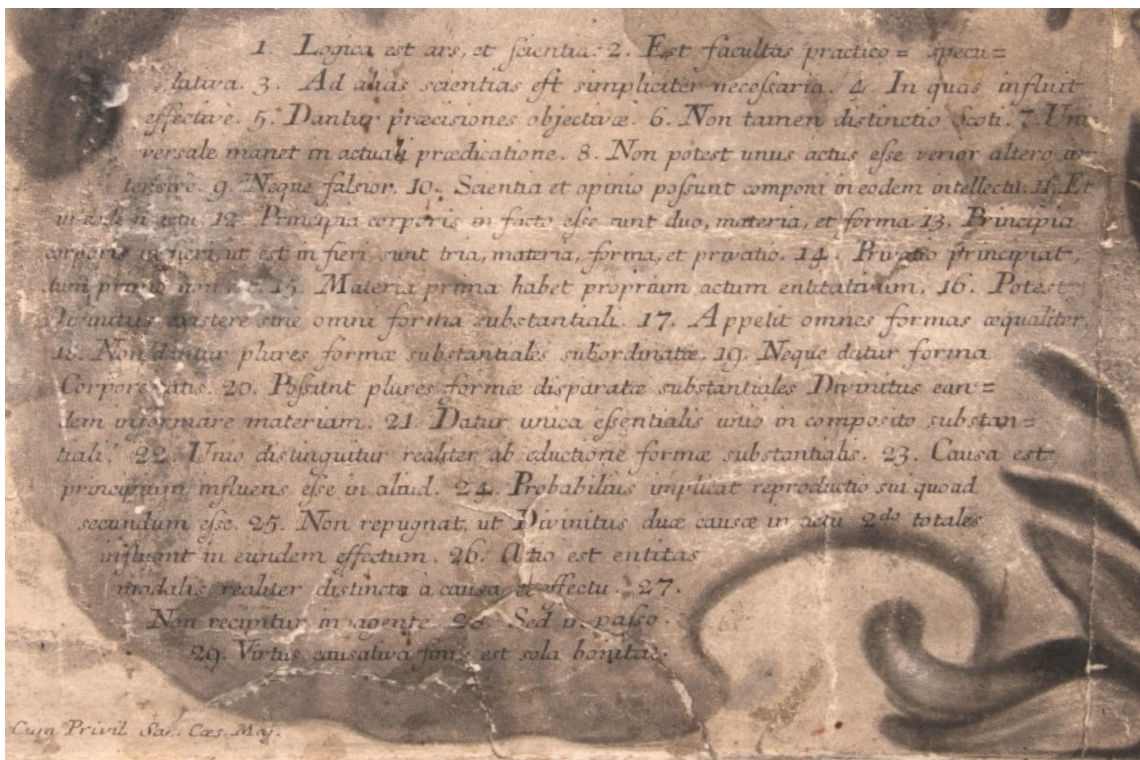 1. Logica est ars, et scientia. 2. Est facultas practico = specu =
lativa. 3. Ad alias scientias est simpliciter necessaria. 4. In quas influit
effective. 5. Dantur præcisiones objectivæ. 6. Non tamen distinctio Scoti. 7. Uni
versale manet in actuali prædicatione. 8. Non potest unus actus esse verior altero in
tensive. 9. Neque falsior. 10. Scientia et opinio possunt componi in eodem intellectu. 11. Et
in eodem actu. 12. Principia corporis in facto esse sunt duo, materia, et forma. 13. Principia
corporis in fieri, ut est in fieri sunt tria, materia, forma, et privatio. 14. Privatio principiat,
tum primo non est. 15. Materia prima habet proprium actum entitativum. 16. Potest
Divinitus existere sine omni forma substantiali. 17. Appetit omnes formas æqualiter.
18. Non dantur plures formæ substantiales subordinatæ. 19. Neque datur forma
Corporeitatis. 20. Possunt plures formæ disparatæ substantiales Divinitus ean =
dem informare materiam. 21. Datur unica essentialis unio in composito substan =
tiali. 22. Unio distinguitur realiter ab eductione formæ substantialis. 23. Causa est
principium influens esse in aliud. 24. Probabilius implicat reproductio sui quoad
secundum esse. 25. Non repugnat, ut Divinitus duæ causæ in actu 2do totales
influant in eundem effectum. 26. Actio est entitas
modalis realiter distincta à causa et effectu. 27.
Non recipitur in agente. 28. Sed in passo.
29. Virtus causativa finis est sola bonitas.
Cum Privil Sac. Cæs. Maj.